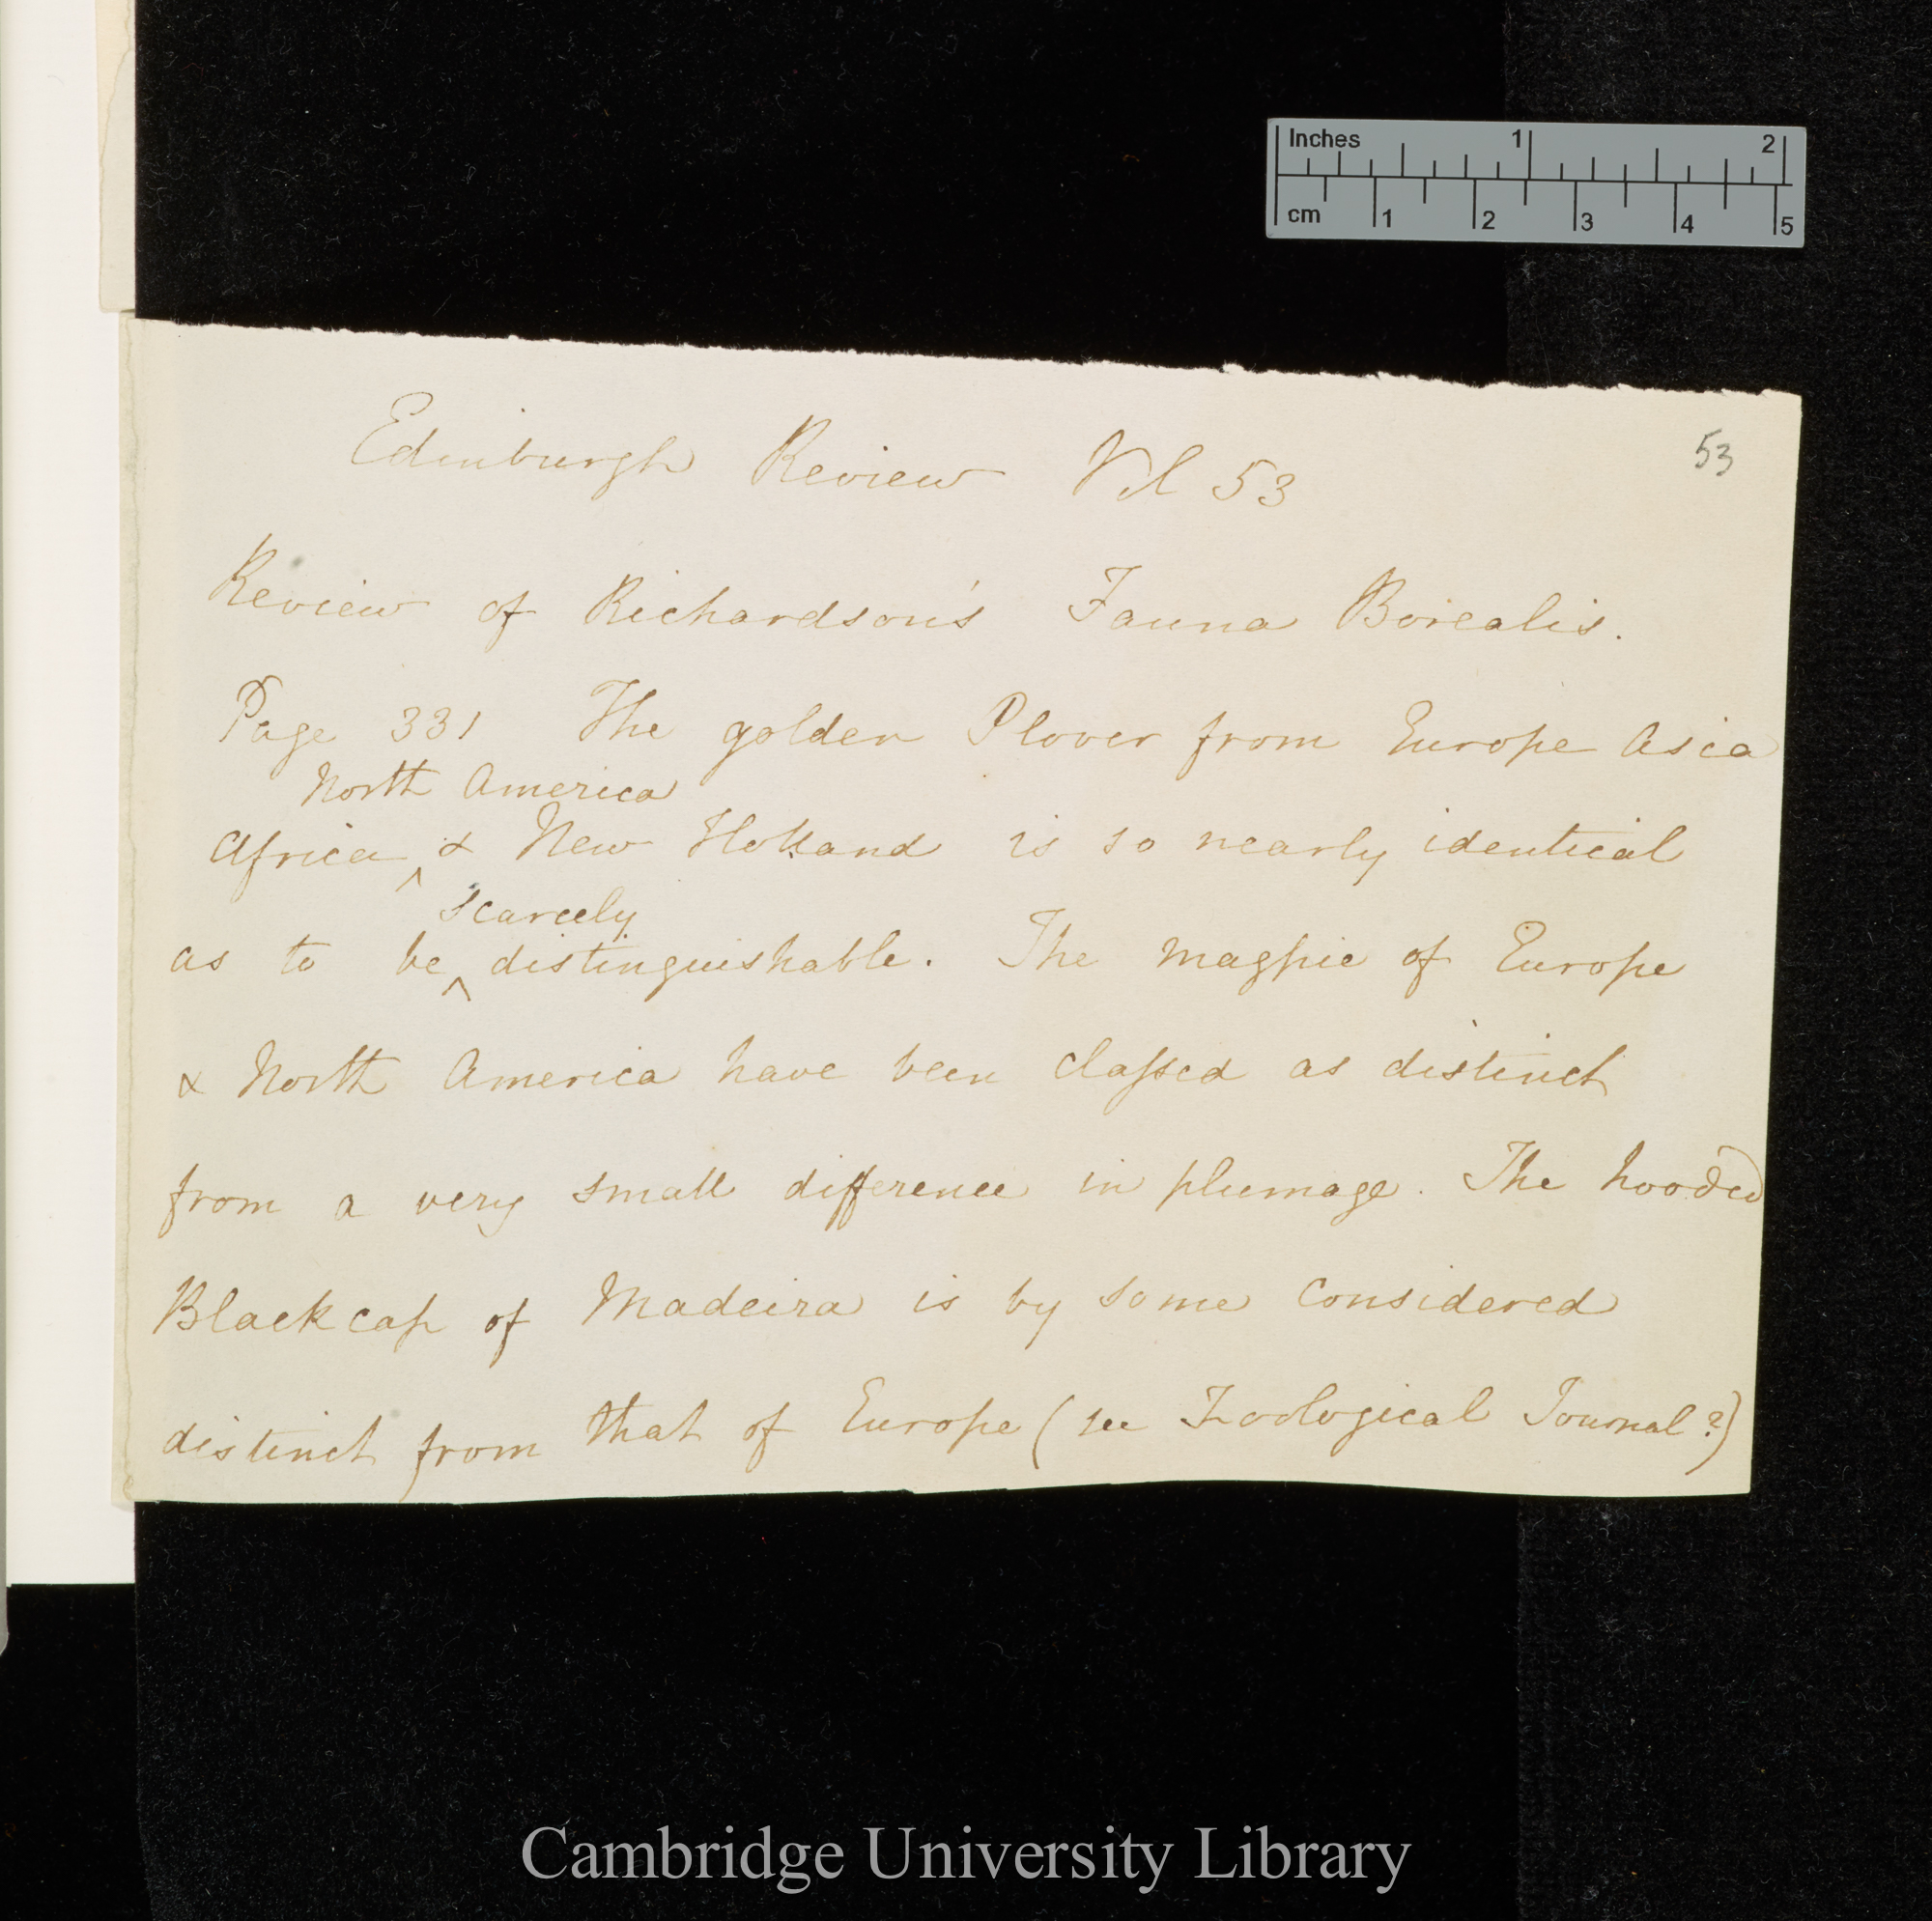 Inches 1 2
cm 1 2 3 4 5
53
Edinburgh Review Vol 53
Review of Richardson's Fauna Borealis.
Page 331 The golden Plover from Europe Asia
North America
Africa ^ & New Holland is so nearly identical
scarcely
as to be ^ distinguishable. The magpie of Europe
& North America have been classed as distinct
from a very small difference in plumage. The hooded
Blackcap of Madeira is by some considered
distinct from that of Europe (see Zoological Journal?)
Cambridge University Library